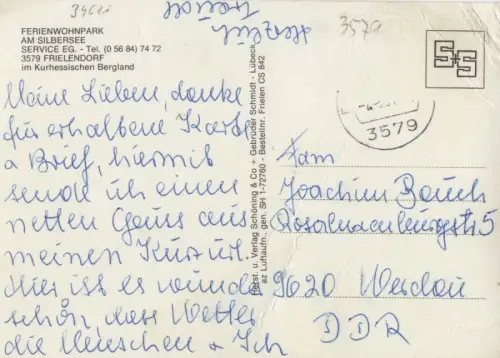 3579
FERIENWOHNPARK
AM SILBERSEE
SERVICE EG. - Tel. (0 56 84) 74 72
3579 FRIELENDORF
im Kurhessischen Bergland
Meine Lieben, danke
für erhaltene Karte
u Brief, hiermit
sende ich einen
netten Gruss aus
meinen Kurort.
Hier ist es wunder
schön, das Wetter
die Menschen u Ich
Herzlich
Herst. u. Verlag Schöning & Co + Gebrüder Schmidt - Lübeck
az Luftaufn. gen. SH 1-72760 - Bestellnr. Frielen CS 842
S+S
3579
Fam
Joachim Bauch
9620 Werdau
DDR